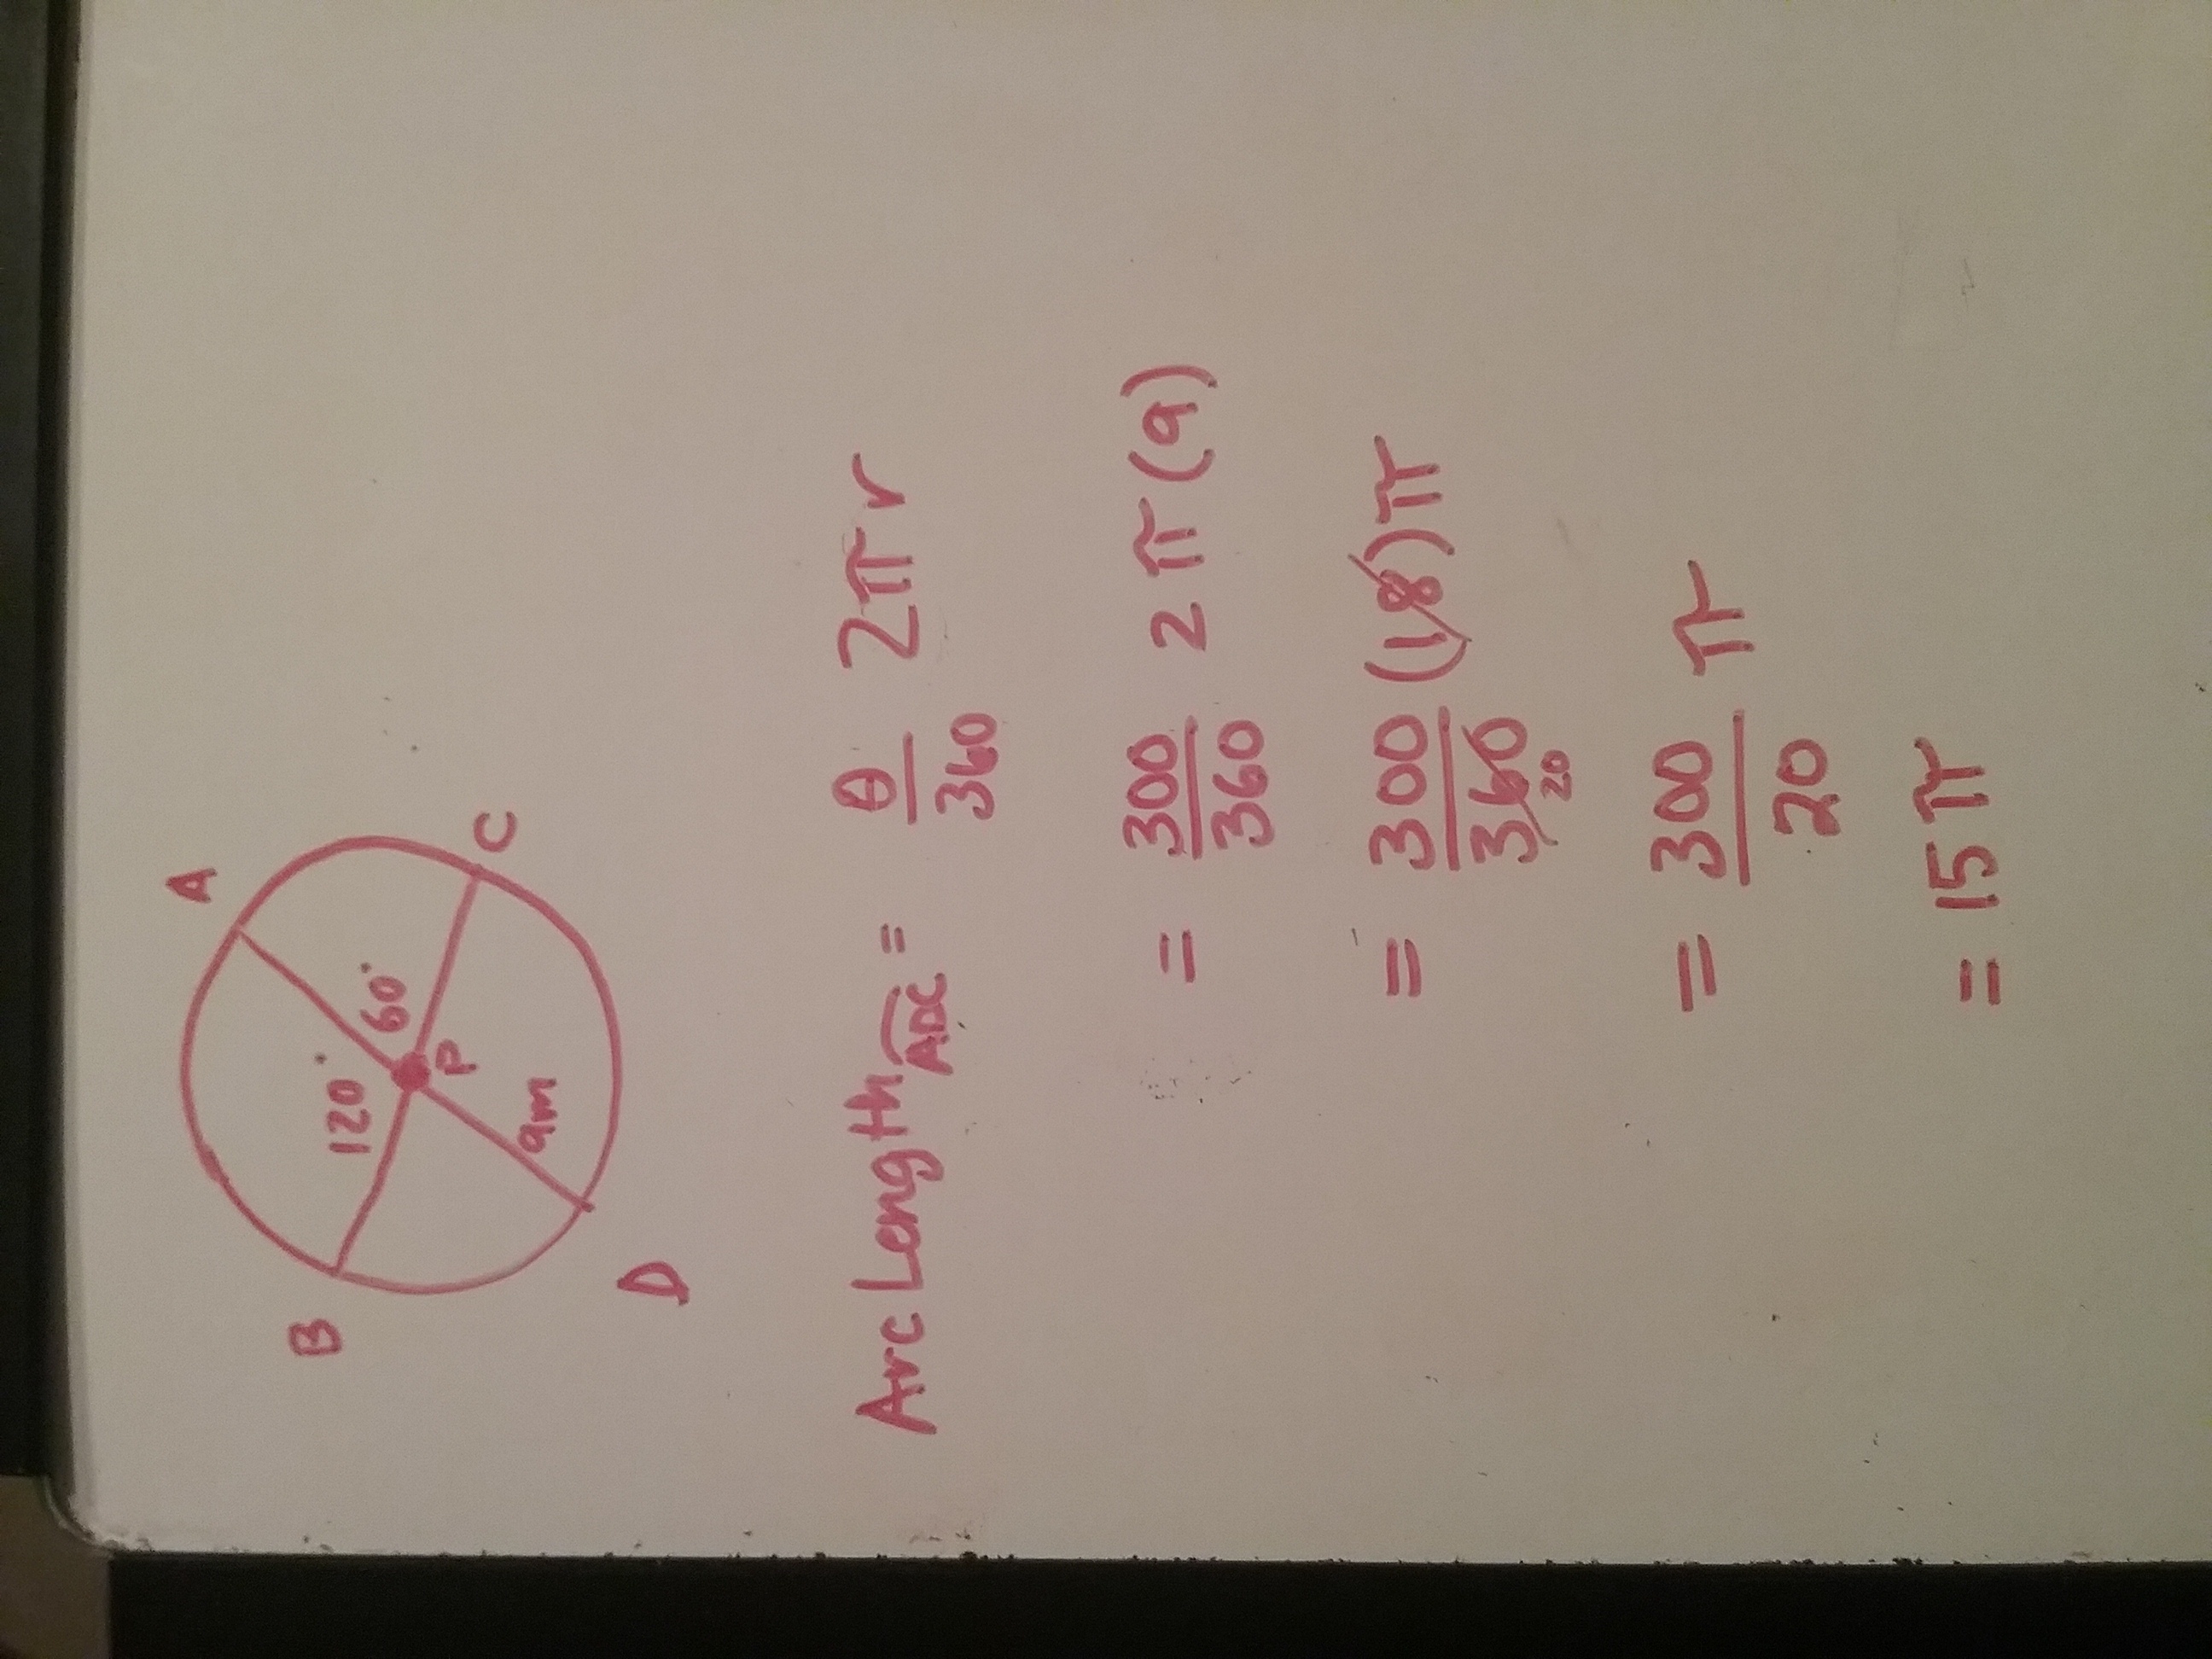 A
B
120°
60°
P
C
9m
D
Arc Length ADC = θ/360 2πr
= 300/360 2π(9)
= 300/360 (18)π
20
= 300/20 π
= 15π